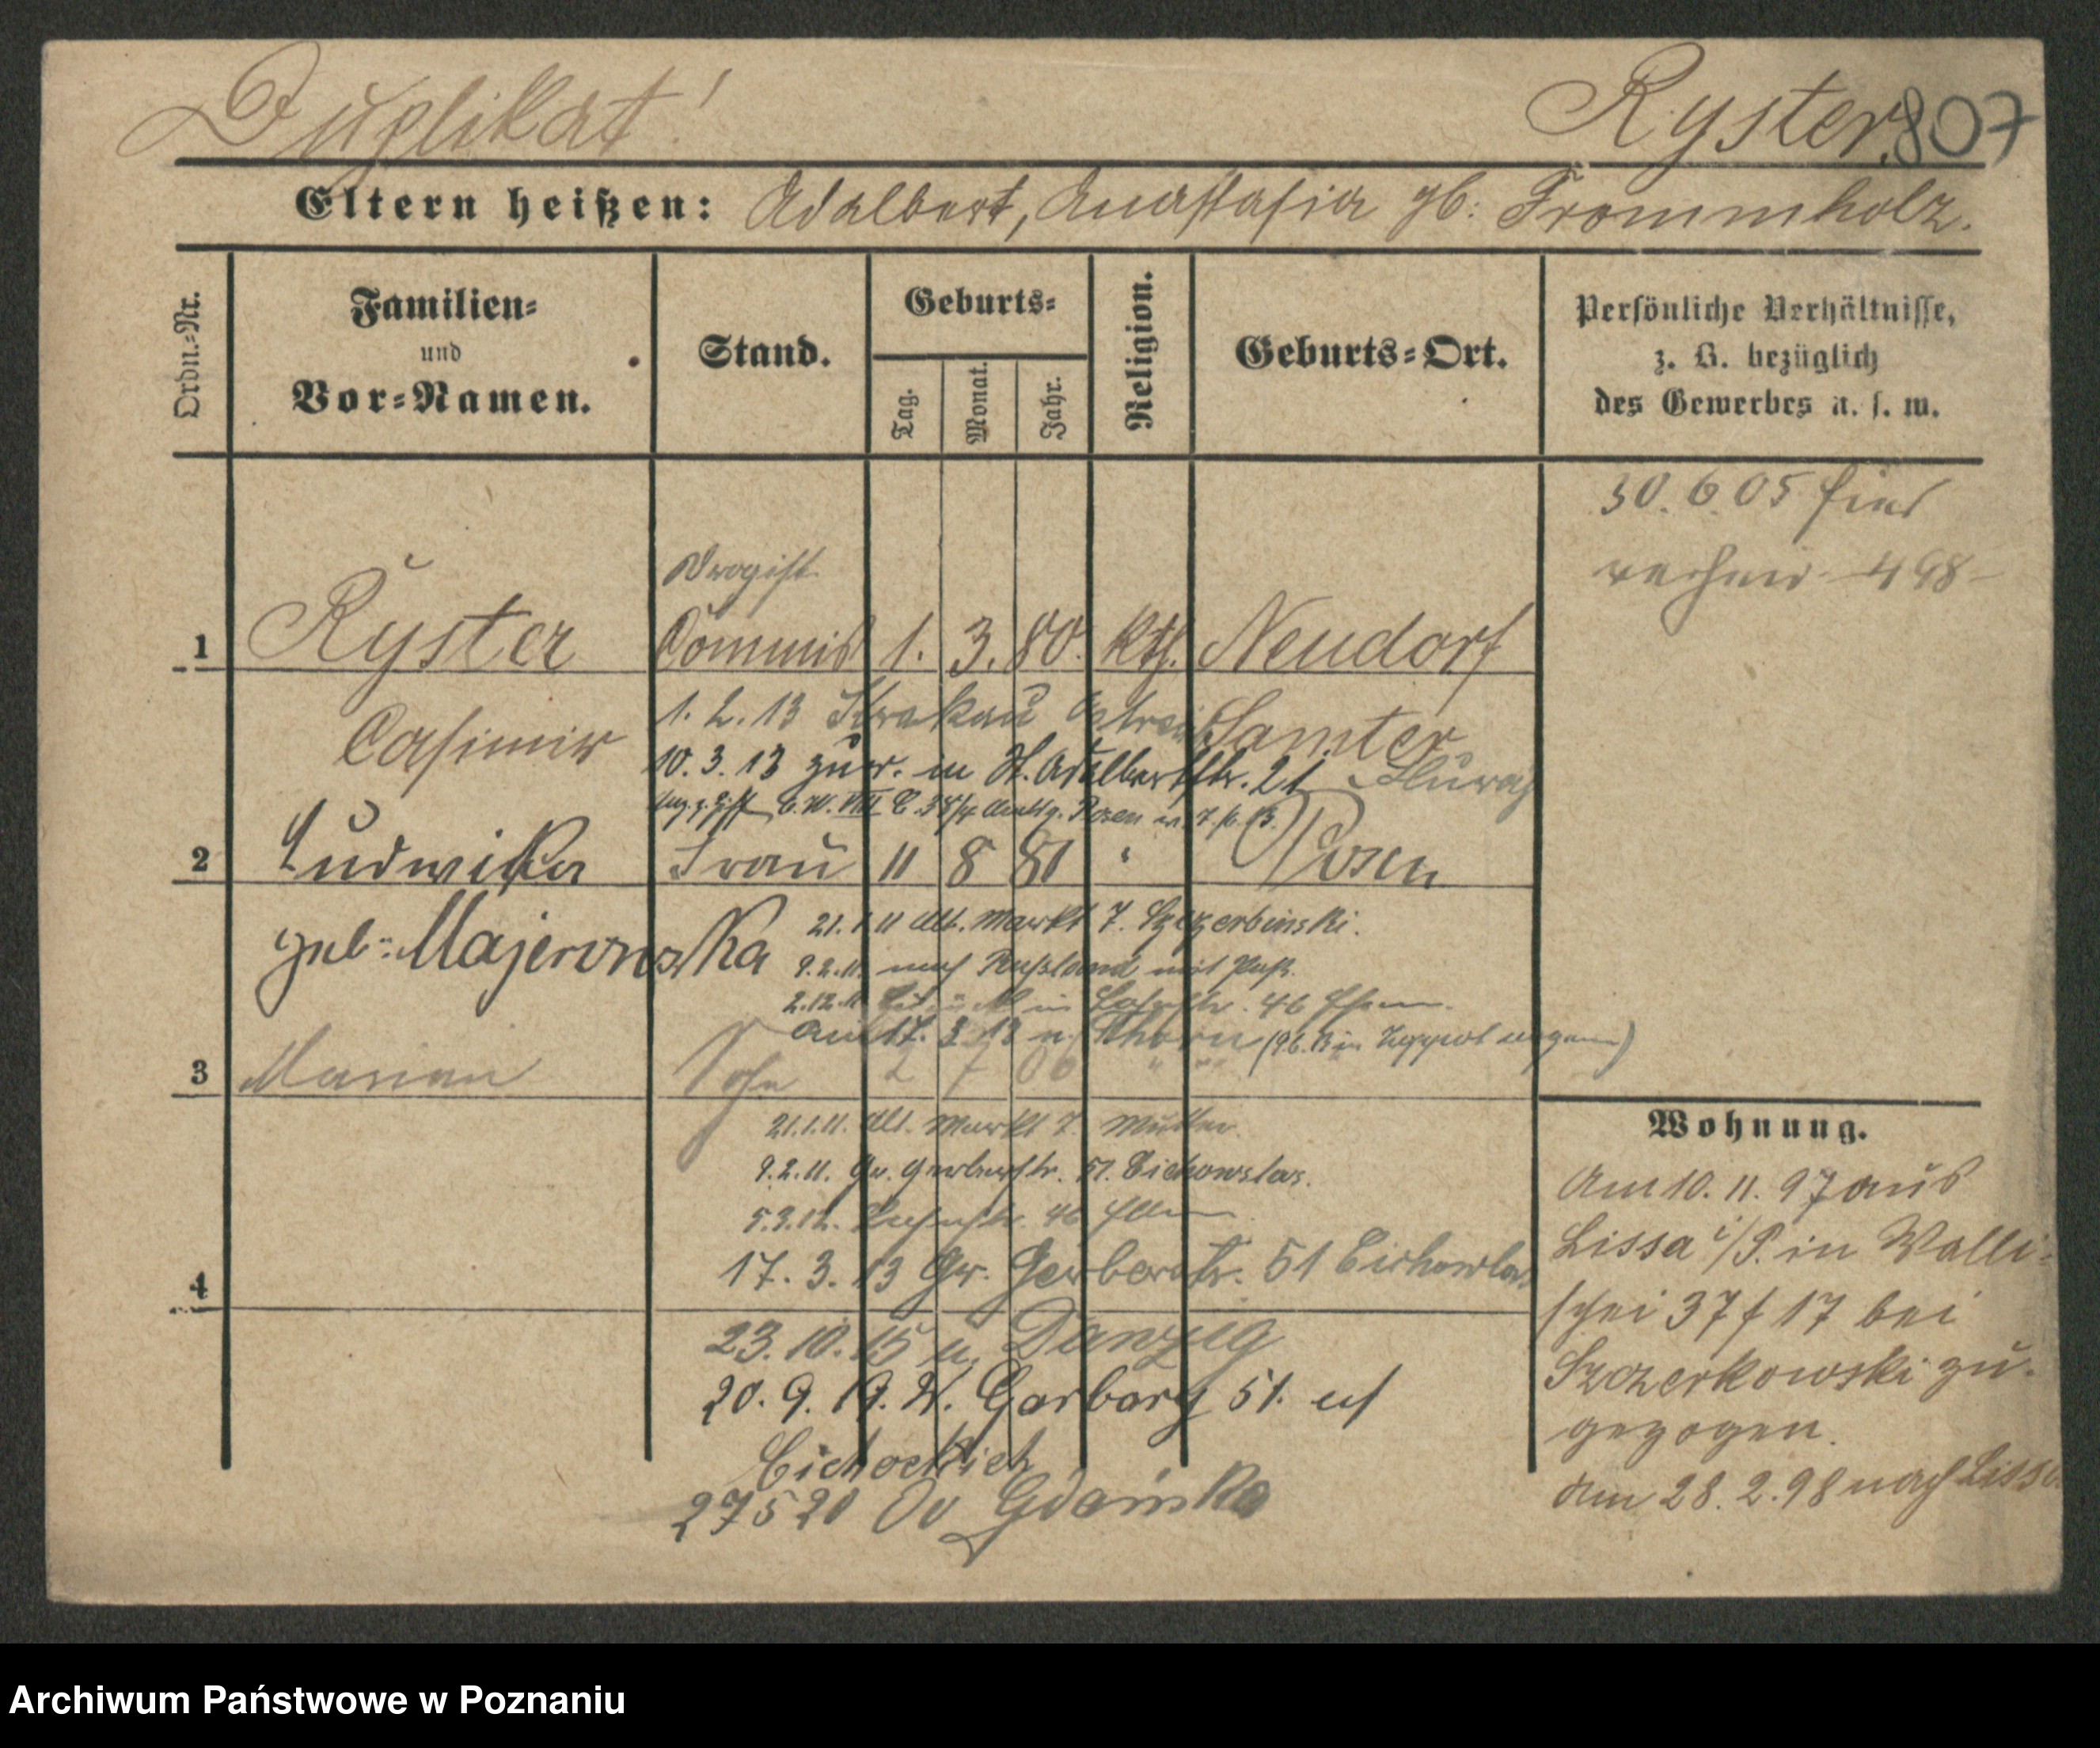 Duplikat!
Ryster. 807
Eltern heißen: Adalbert, Anastasia gb: Frommholz.
Ordn.-Nr.
Familien-
und
Vor-Namen.
Stand.
Geburts-
Tag.
Monat.
Jahr.
Religion.
Geburts-Ort.
Persönliche Verhältnisse,
z. B. bezüglich
des Gewerbes u. s. w.
30. 6. 05
498
Drogist
1 Ryster Commis 1. 3. 80. Kth. Neudorf
Casimir
1. 2. 13 Krakau Samter
10. 3. 13 zur. in St. Adalbertstr. 21
Posen
2 Ludwika Frau 11 8 81 " Posen
geb: Majerowska
21. 1 11 Alt. Markt 7. Szczerbinski.
9. 2. 11. nach Rußland mit Paß.
2. 12. 11 46
am 17. 3 13 n. Thorn
3 Marian Sohn 2 7 06 " "
21. 1. 11. Alt. Markt 7. Mutter.
9. 2. 11. Gr. Gerberstr. 51. Cichowlas.
5. 3. 12. 46
17. 3. 13 Gr. Gerberstr. 51 Cichowlas
4
23. 10. 15 n. Danzig
20. 9. 19. W. Garbary 51.
27 5 20 Do Gdańska
Wohnung.
Am 10. 11. 97 aus
Lissa i/P. in Walli-
schei 37 f 17 bei
Szczerkowski zu-
gezogen.
Am 28. 2. 98 nach Lissa
Archiwum Państwowe w Poznaniu